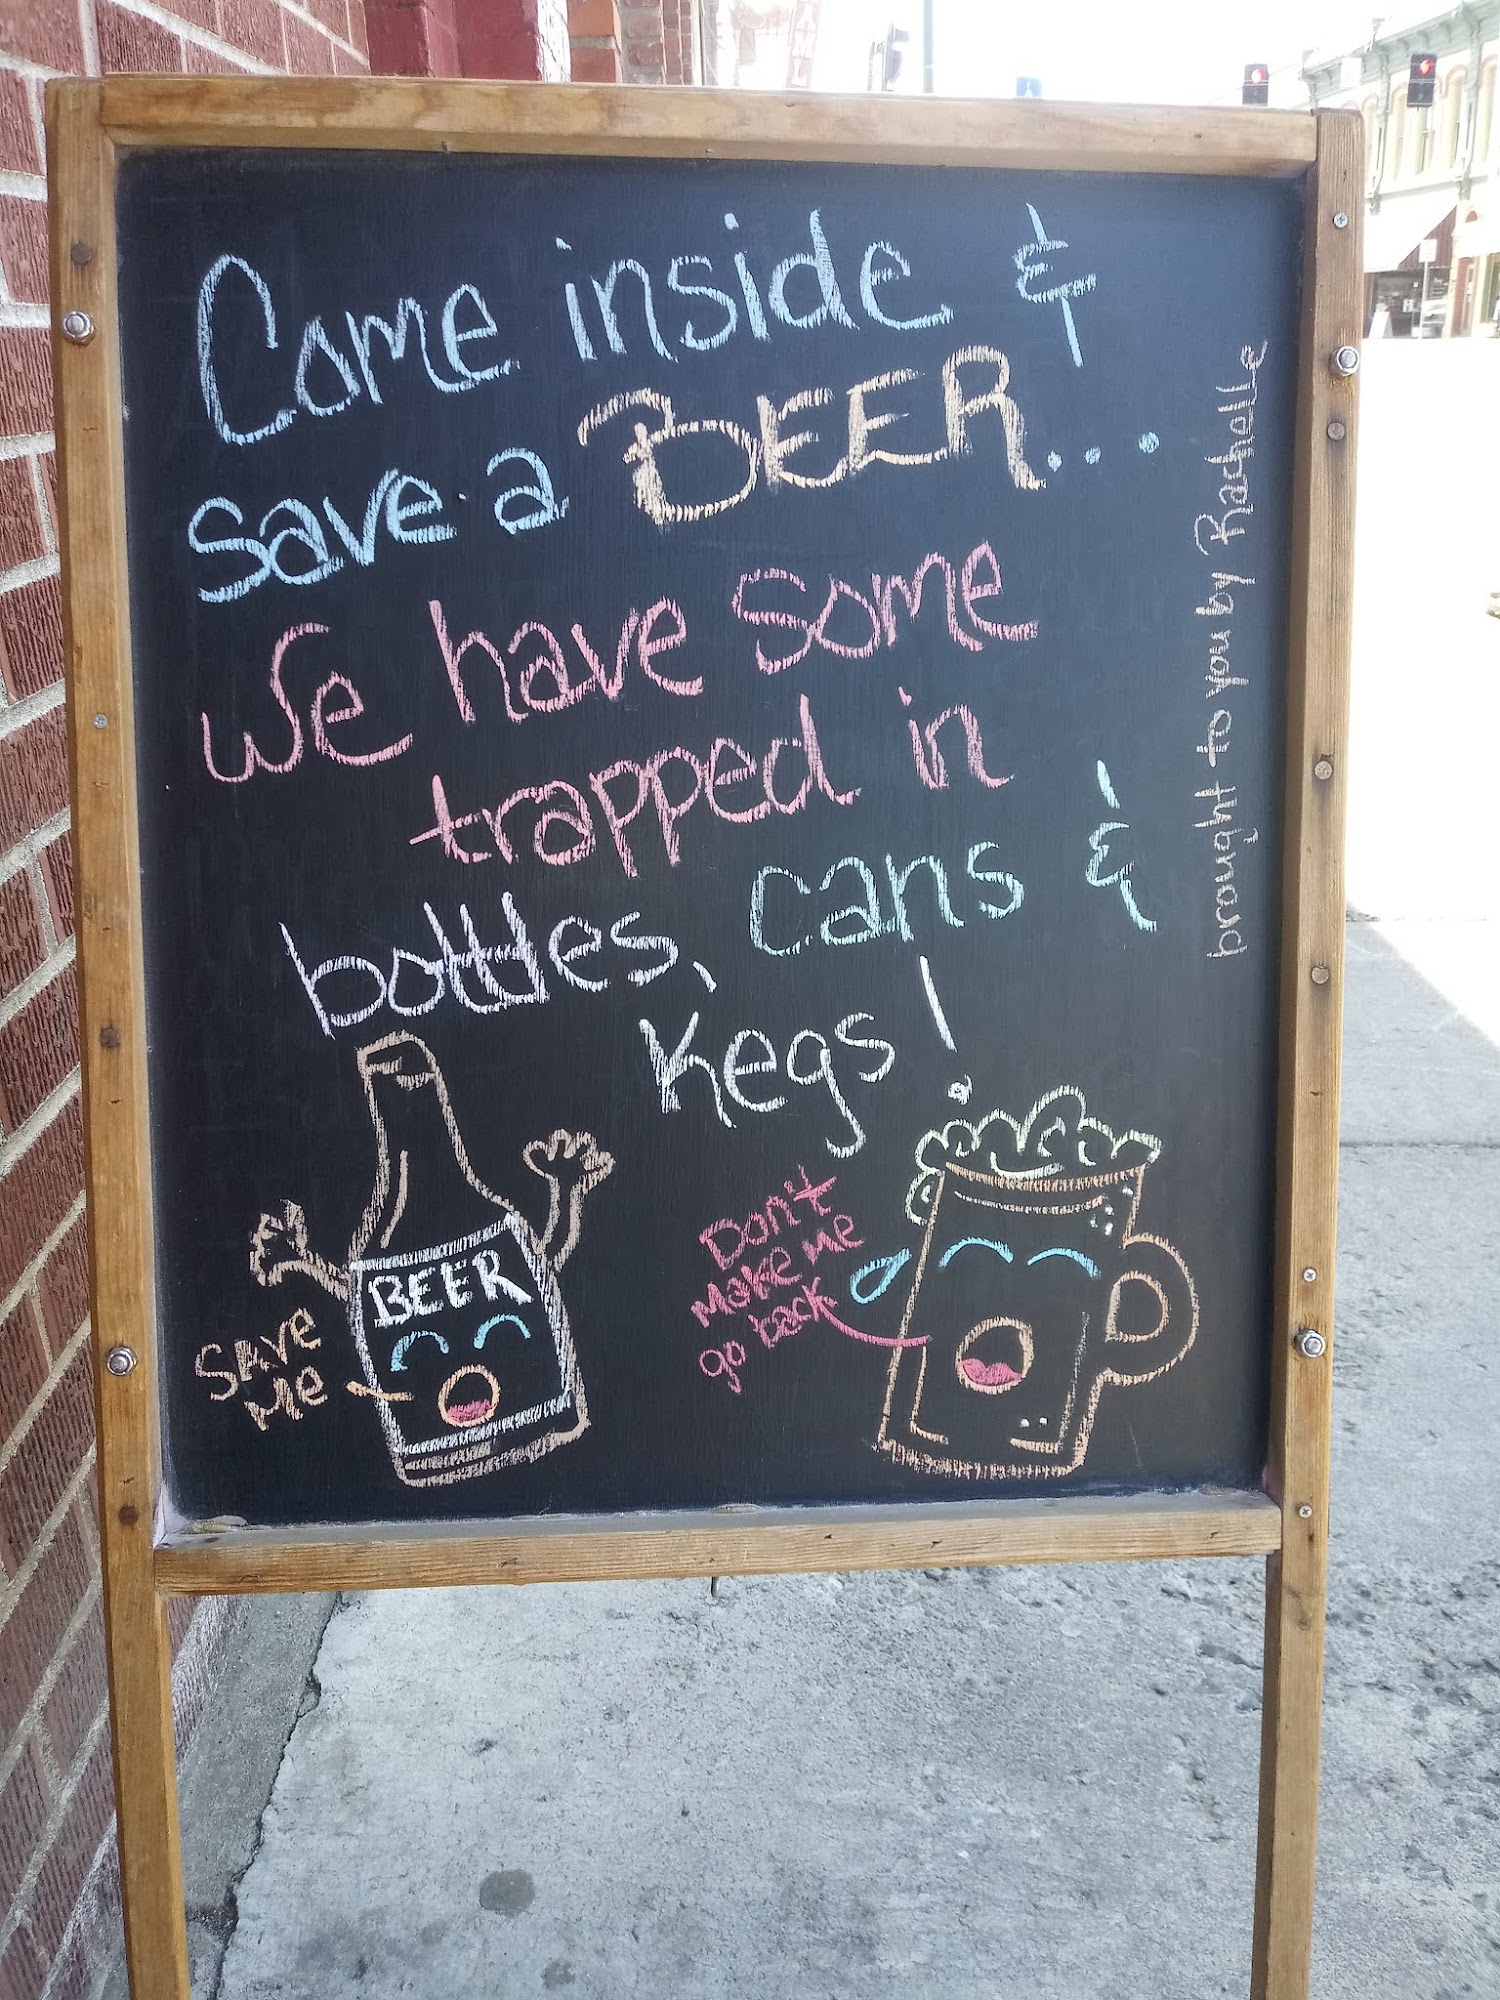 Come inside &
save a BEER...
We have some
trapped in
bottles, cans &
Kegs!
BEER
SAVE
Me
Don't
Make Me
go back
brought to you by Rachelle